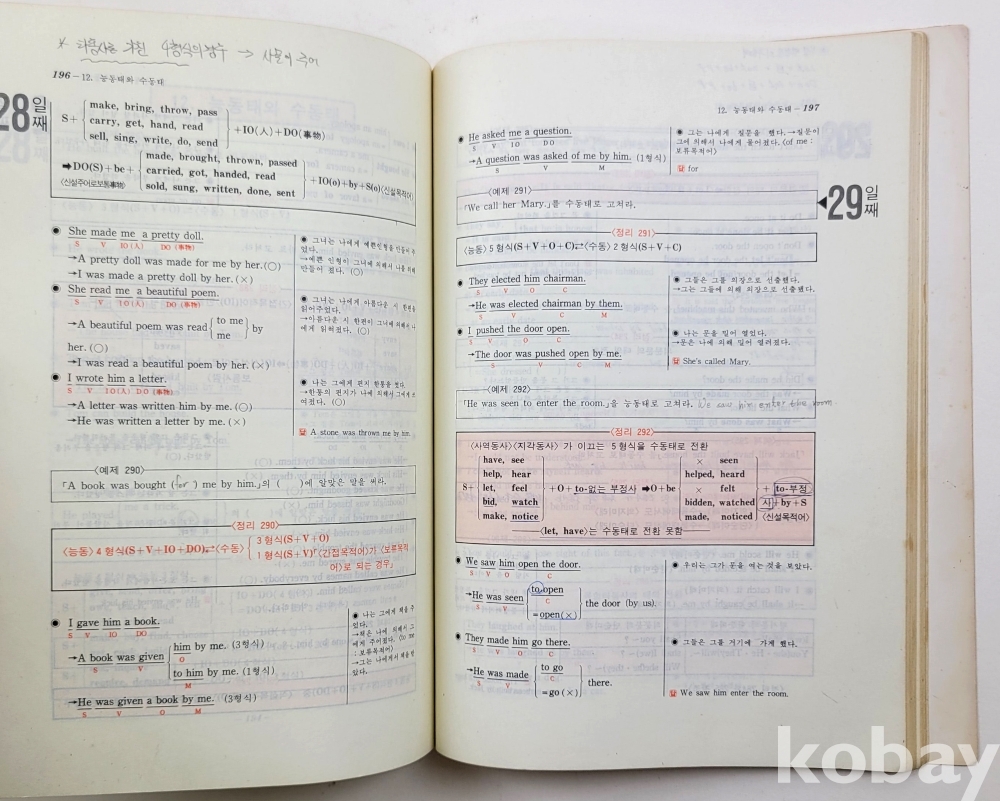 * 다음사능 거친 4형식의 경우 → 사물이 주어
196-12. 능동태와 수동태
28일째
make, bring, throw, pass
S+ carry, get, hand, read +IO(人)+DO(事物)
sell, sing, write, do, send
made, brought, thrown, passed
➡DO(S)+be+ carried, got, handed, read +IO(o)+by+S(o)<신설목적어>
<신설주어로보통事物> sold, sung, written, done, sent
● She made me a pretty doll.
S V IO(人) DO(事物)
→A pretty doll was made for me by her.(○)
→I was made a pretty doll by her.(×)
● 그녀는 나에게 예쁜인형을 만들어 주었다.
→예쁜 인형이 그녀에 의해서 나를 위해 만들어 졌다. (○)
● She read me a beautiful poem.
S V IO(人) DO(事物)
→A beautiful poem was read {to me / me} by
her.(○)
→I was read a beautiful poem by her.(×)
● 그녀는 나에게 아름다운 시 한편을 읽어주었다.
→아름다운 시 한편이 그녀에 의해서 나에게 읽혀졌다. (○)
● I wrote him a letter.
S V IO(人) DO(事物)
→A letter was written him by me.(○)
→He was written a letter by me.(×)
● 나는 그에게 편지 한통을 썼다.
→한통의 편지가 나에 의해서 그에게 쓰여졌다. (○)
답 A stone was thrown me by him.
<예제 290>
「A book was bought (for) me by him.」의 ( )에 알맞은 말을 써라.
<정리 290>
<능동>4형식(S+V+IO+DO)⇄<수동> 3형식(S+V+O)
1형식(S+V)「<간접목적어>가 <보류목적어>로 되는 경우」
● I gave him a book.
S V IO DO
→A book was given him by me. (3형식)
S V O
to him by me. (1형식)
M
→He was given a book by me. (3형식)
S V O M
● 나는 그에게 책을 주었다.
→책은 나에 의해서 그에게 주어졌다. (to me : 보류목적어)
→그는 나에게서 책을 받았다.
12. 능동태와 수동태-197
● He asked me a question.
S V IO DO
→A question was asked of me by him. (1형식)
S V M
● 그는 나에게 질문을 했다.→질문이 그에 의해서 나에게 물어졌다. <of me : 보류목적어>
답 for
<예제 291>
「We call her Mary.」를 수동태로 고쳐라.
◀29일째
<정리 291>
<능동>5형식(S+V+O+C)⇄<수동>2형식(S+V+C)
● They elected him chairman.
S V O C
→He was elected chairman by them.
S V C M
● 그들은 그를 의장으로 선출했다.
→그는 그들에 의해 의장으로 선출됐다.
● I pushed the door open.
S V O C
→The door was pushed open by me.
S V C M
● 나는 문을 밀어 열었다.
→문은 나에 의해 밀어 열려졌다.
답 She's called Mary.
<예제 292>
「He was seen to enter the room.」을 능동태로 고쳐라. We saw him enter the room.
<정리 292>
<사역동사><지각동사> 가 이끄는 5형식을 수동태로 전환
have, see × seen
help, hear helped, heard
S+ let, feel +O+to-없는 부정사 ➡O+be × felt + to-부정사+by+S
bid, watch bidden, watched
make, notice made, noticed <신설목적어>
<let, have>는 수동태로 전환 못함
● We saw him open the door.
S V O C
→He was seen to open the door (by us).
S V C
=open(×)
● 우리는 그가 문을 여는 것을 보았다.
● They made him go there.
S V O C
→He was made to go there.
S V C
=go(×)
● 그들은 그를 거기에 가게 했다.
답 We saw him enter the room.
kobay